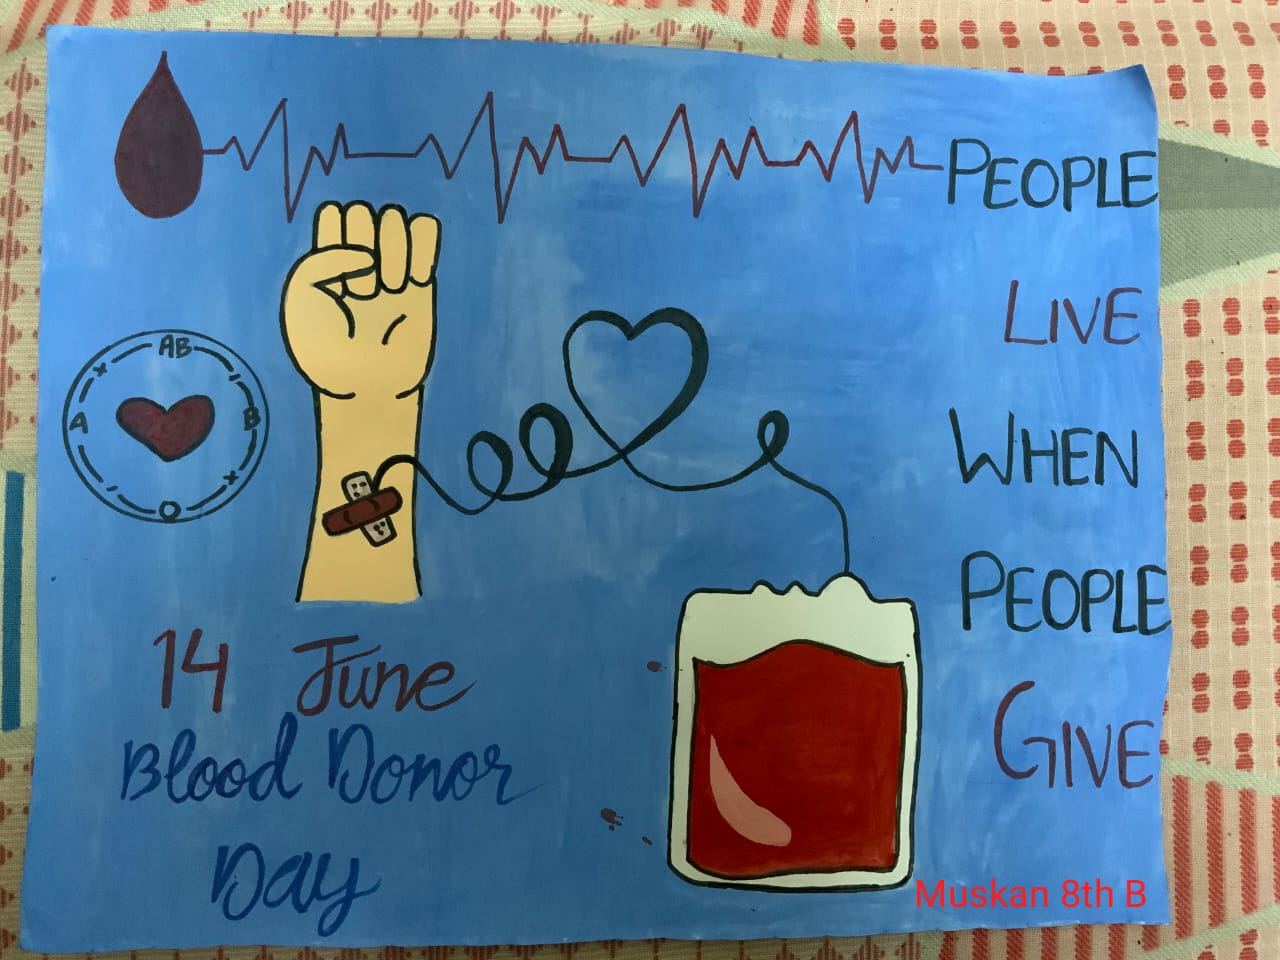 PEOPLE
LIVE
WHEN
PEOPLE
GIVE
AB
A
B
O
14 June
Blood Donor
Day
Muskan 8th B